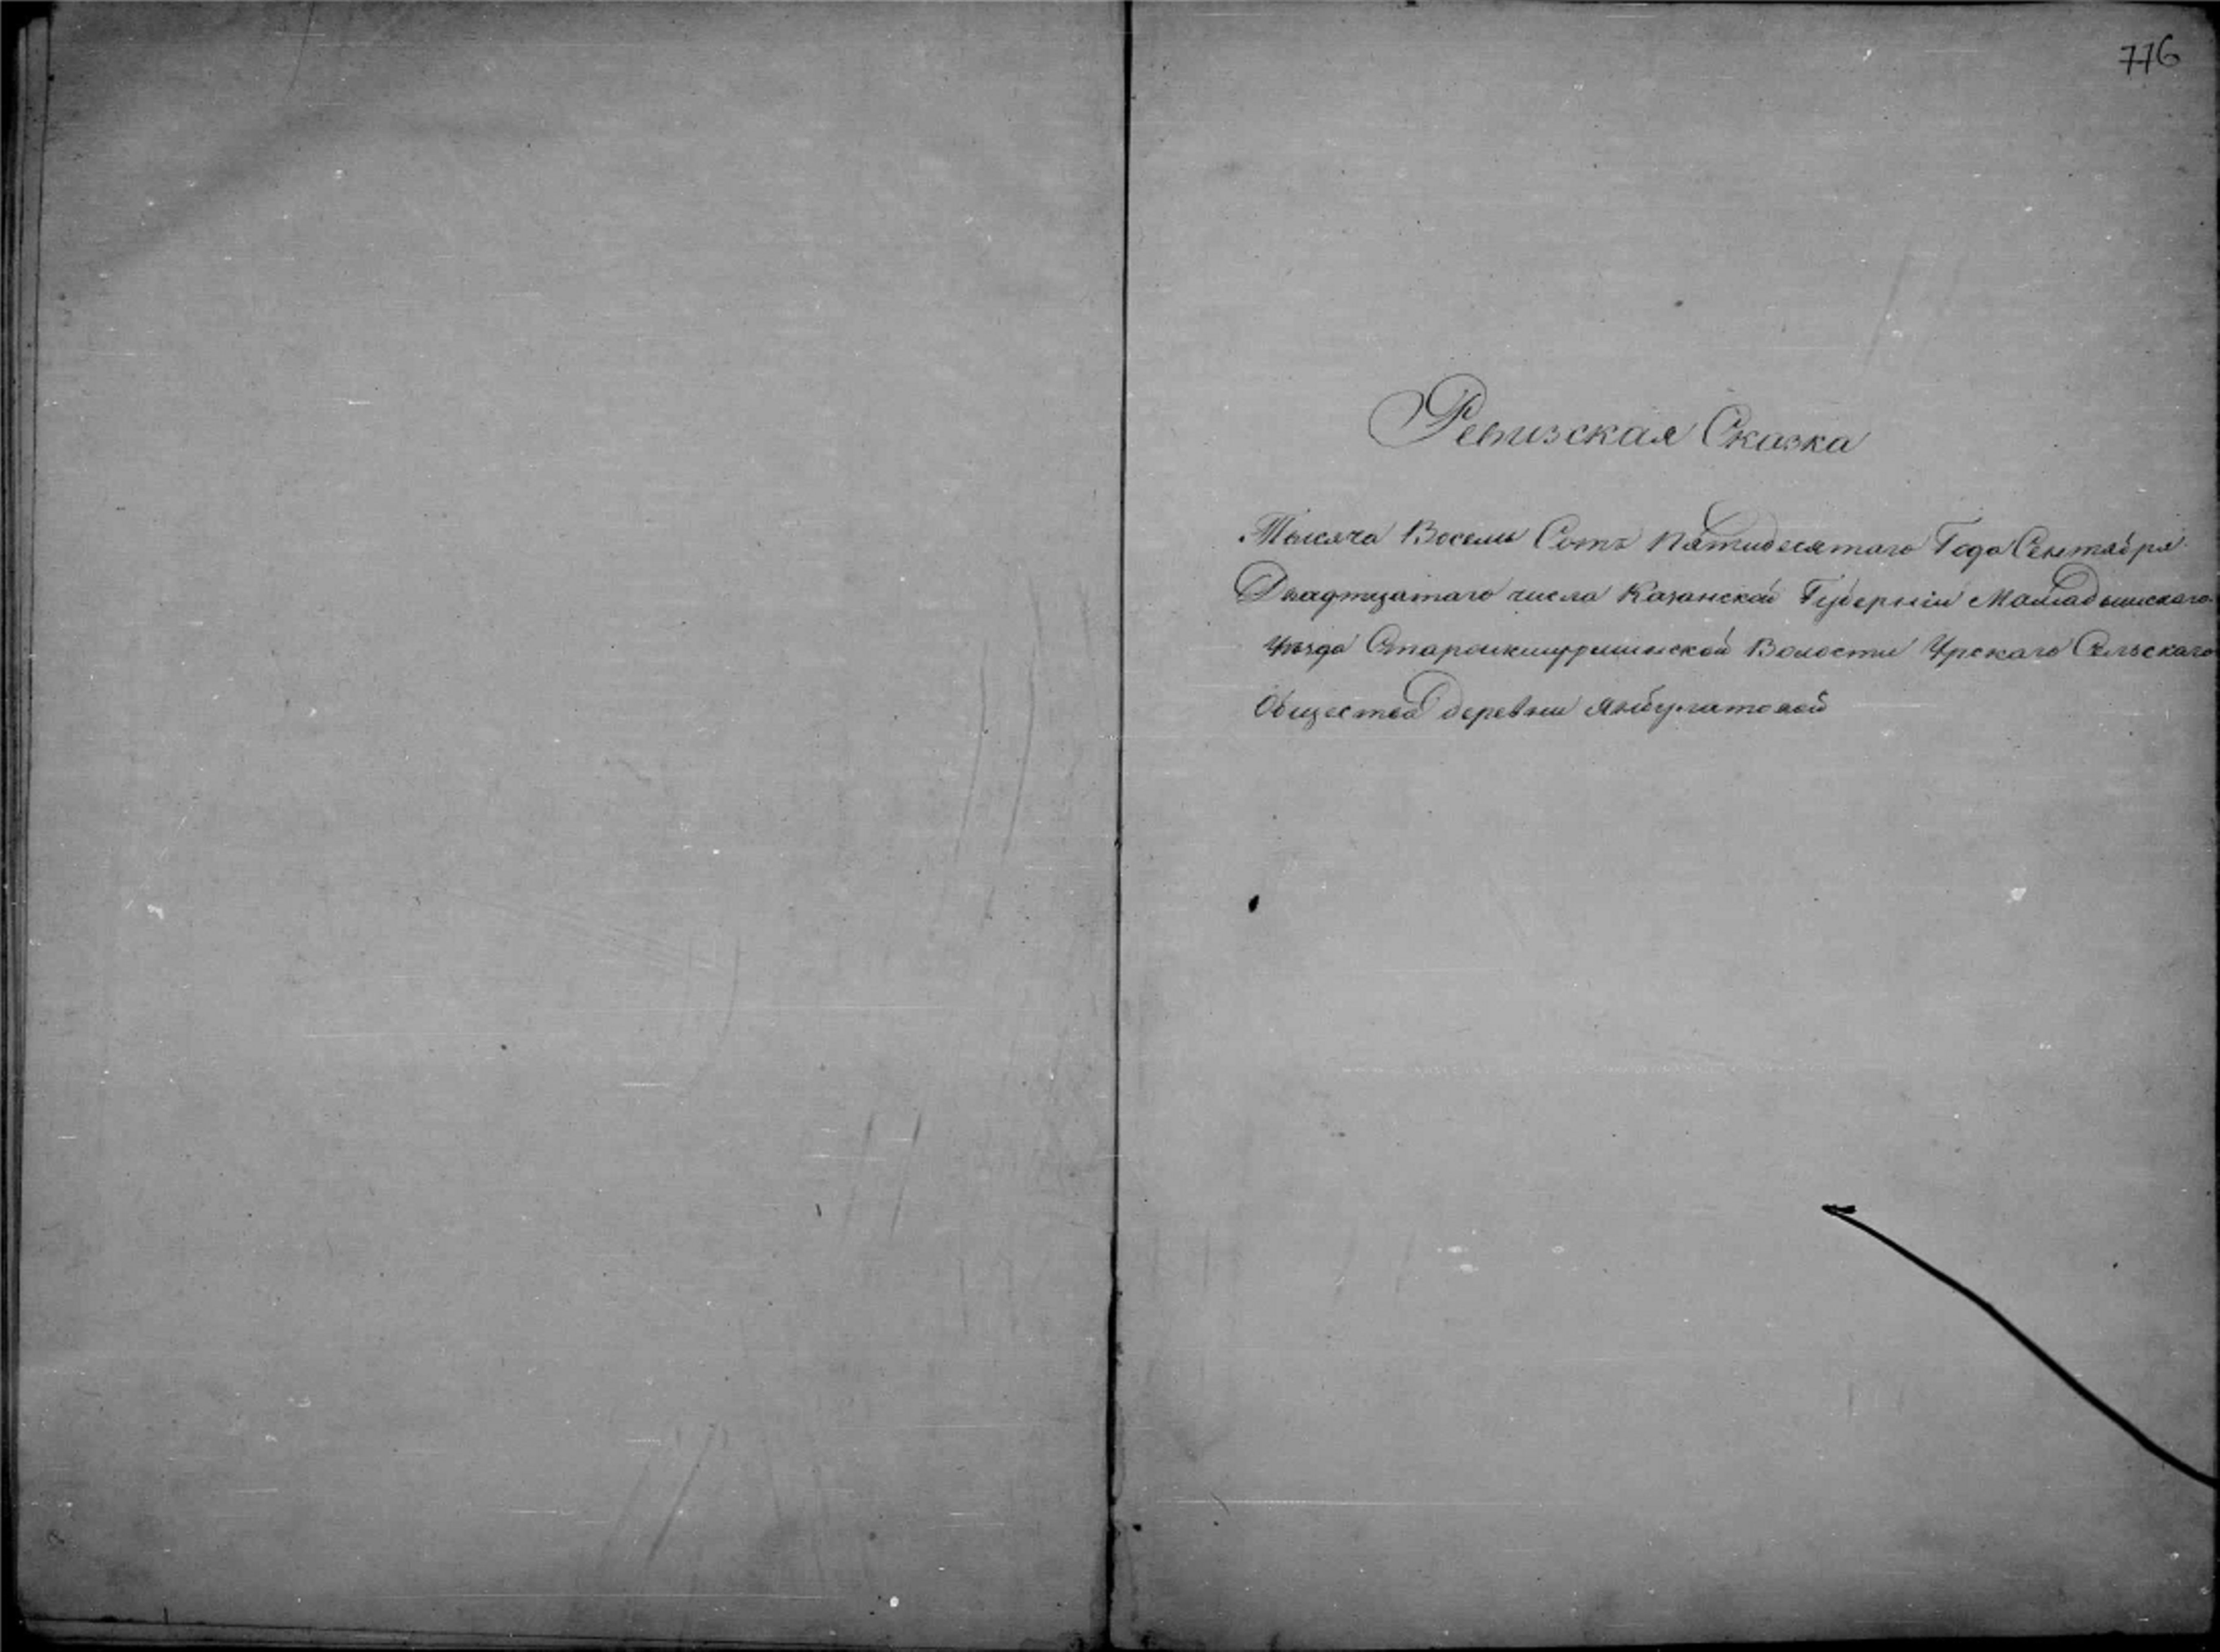 776
Ревизская Сказка
Тысяча Восемь Сотъ Пятидесятаго Года Сентября
Двадцатаго числа Казанской Губерніи Мамадышскаго
Уѣзда Волости Урскаго Сельскаго
Общества деревни Янбулатовой